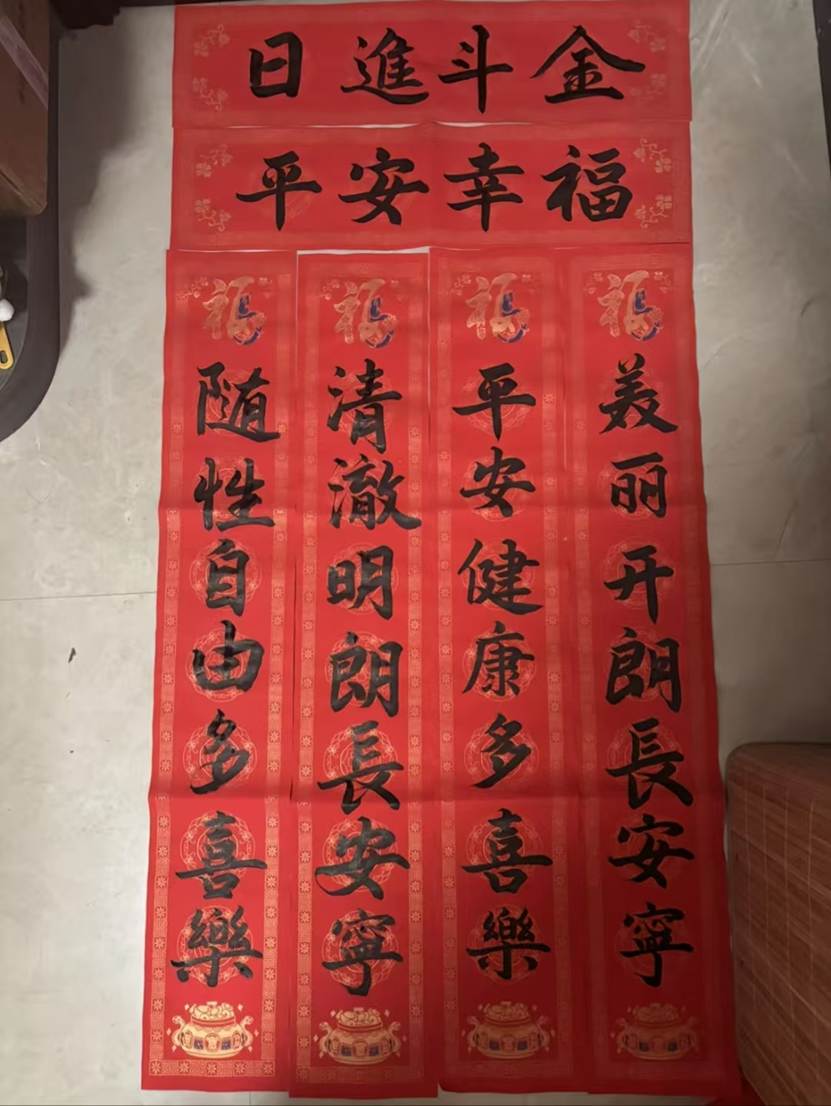 日進斗金
平安幸福
福
随性自由多喜樂
福
清澈明朗長安寧
福
平安健康多喜樂
福
美丽开朗長安寧